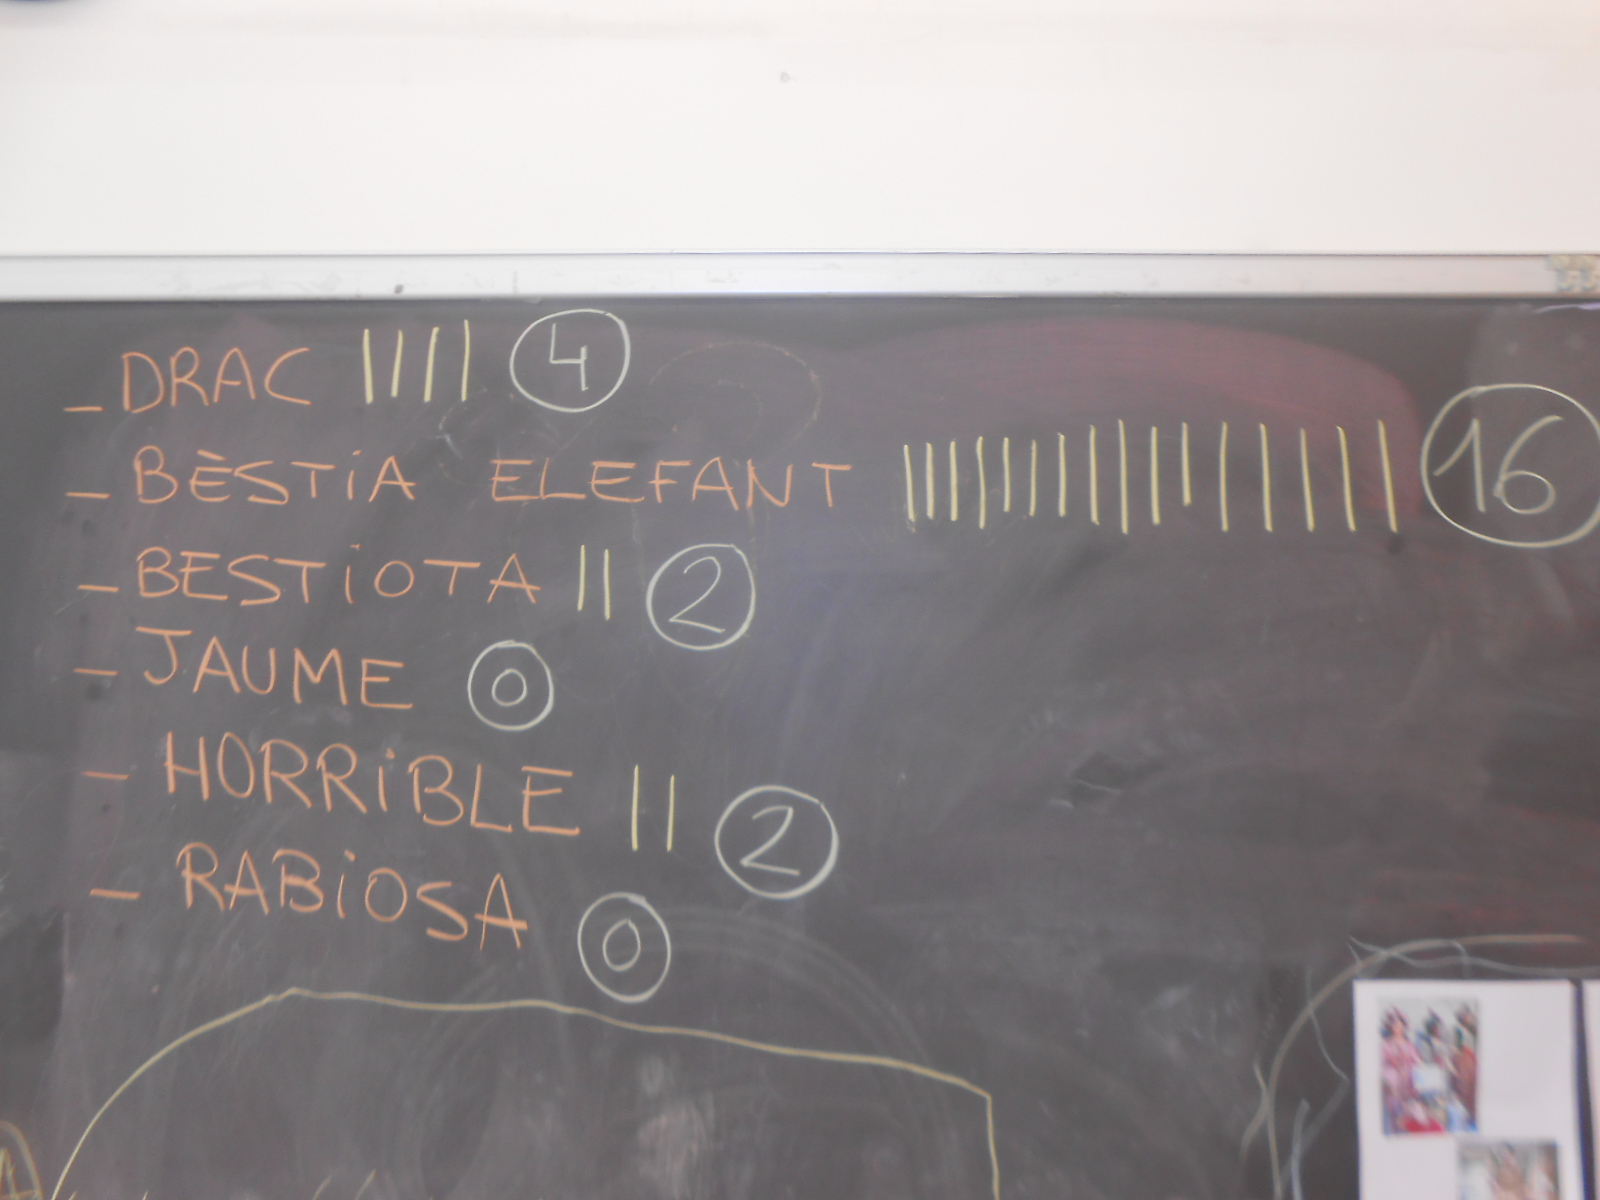 - DRAC |||| 4
- BÈSTiA ELEFANT |||||||||||||||| 16
- BESTiOTA || 2
- JAUME 0
- HORRiBLE || 2
- RABiOSA 0